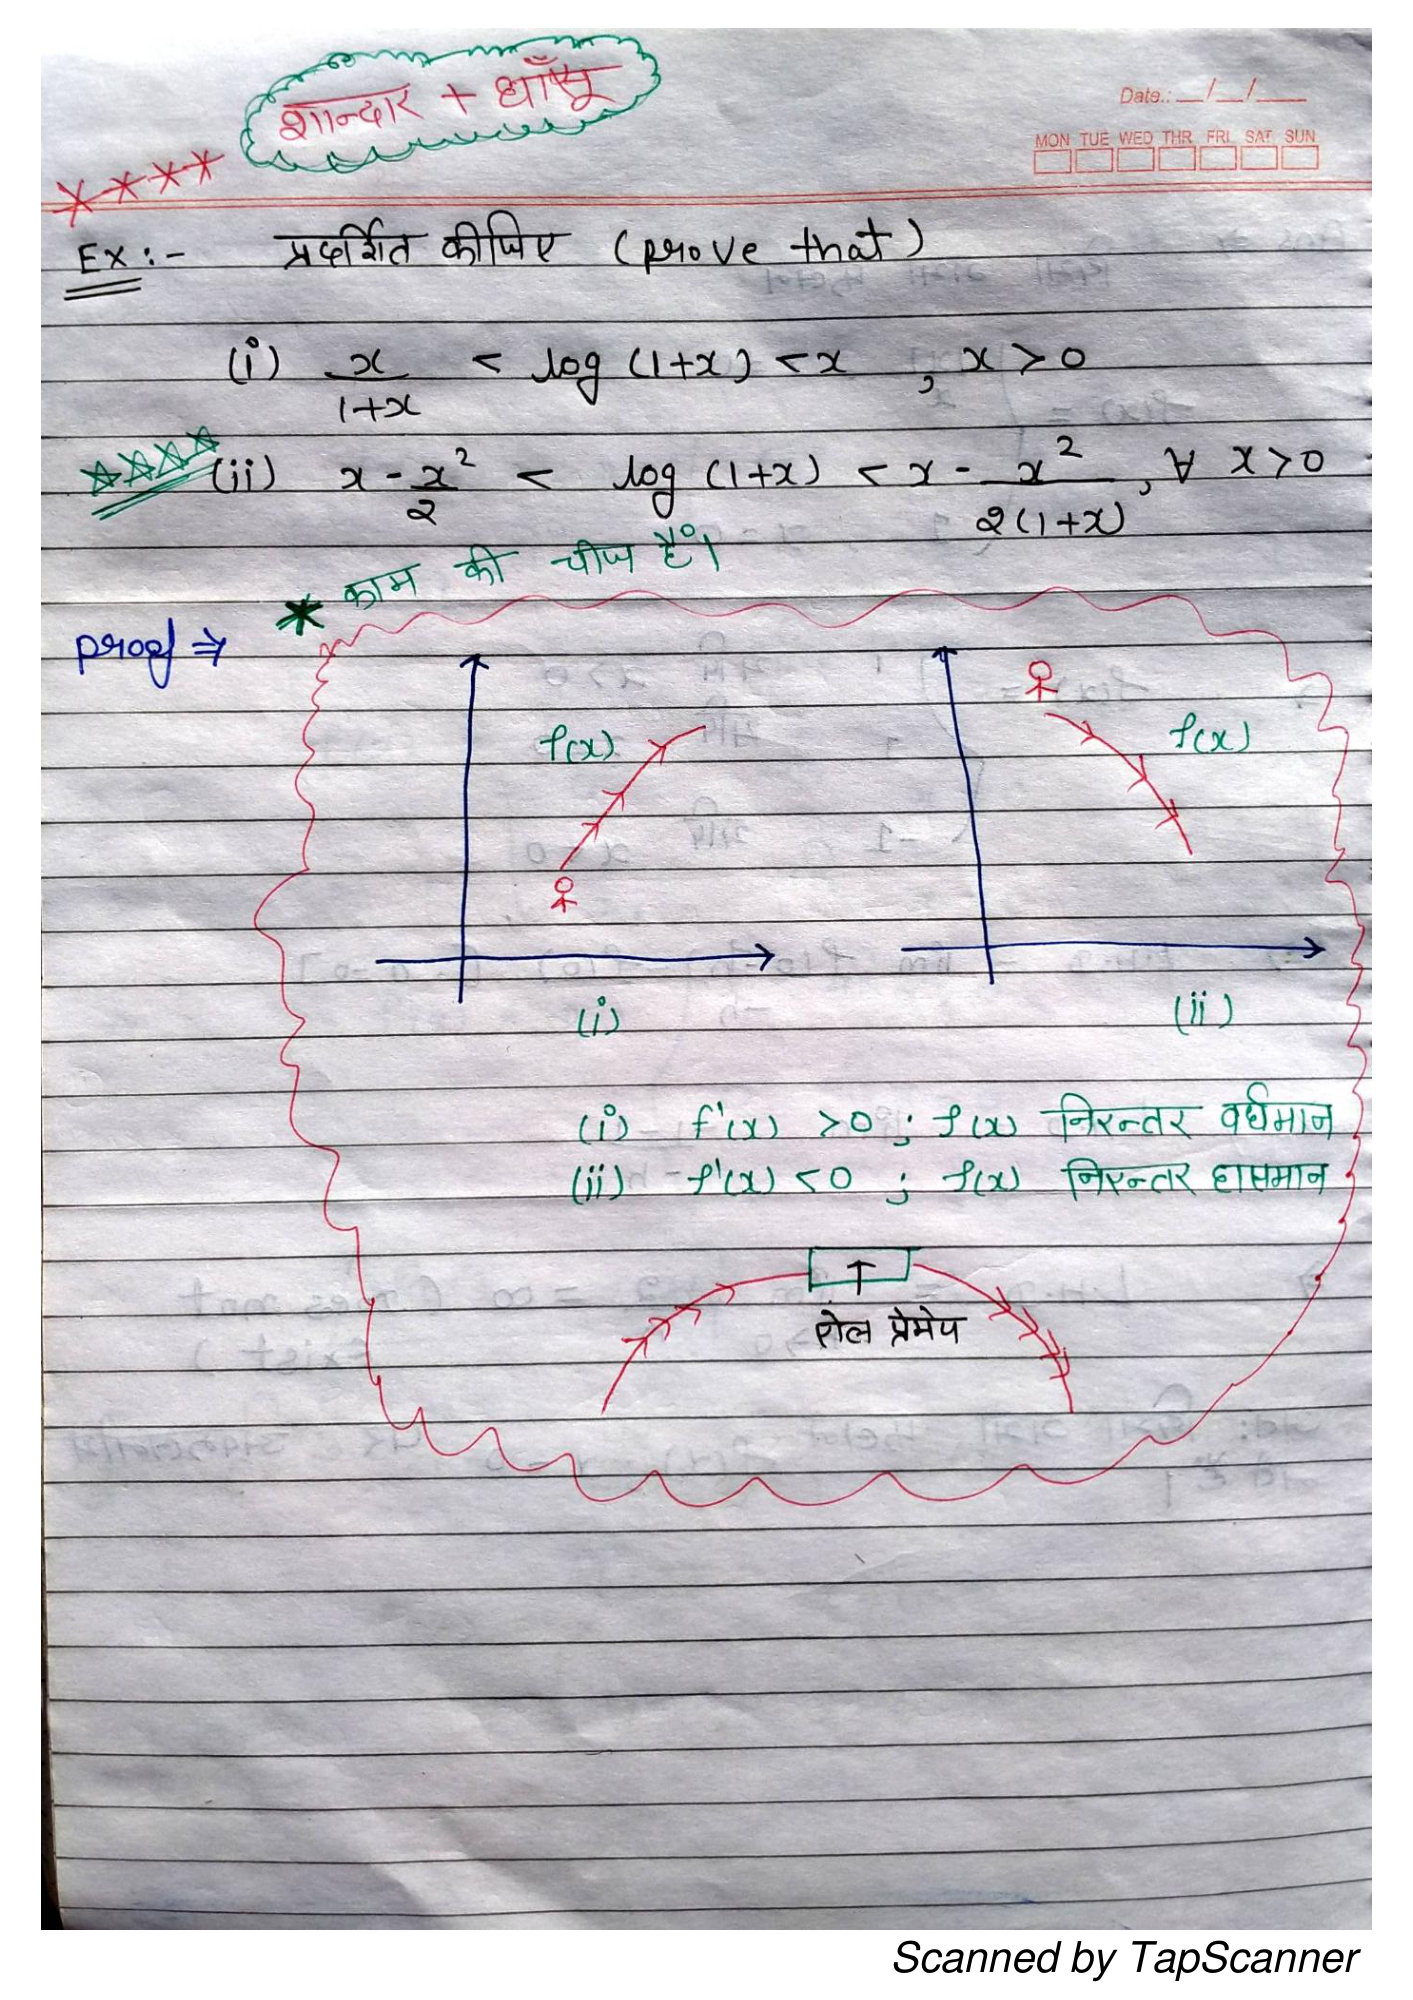 शान्दार + धाँसू
Date.: __/__/____
MON TUE WED THR FRI SAT SUN
Ex :- प्रदर्शित कीजिए (prove that)
(i) x/(1+x) < log (1+x) < x , x > 0
(ii) x - x²/2 < log (1+x) < x - x²/(2(1+x)), ∀ x > 0
* काम की चीज है।
proof ⇒
f(x) f(x)
(i) (ii)
(i) f'(x) > 0 ; f(x) निरन्तर वर्धमान
(ii) f'(x) < 0 ; f(x) निरन्तर हासमान
रोल प्रेमेय
Scanned by TapScanner